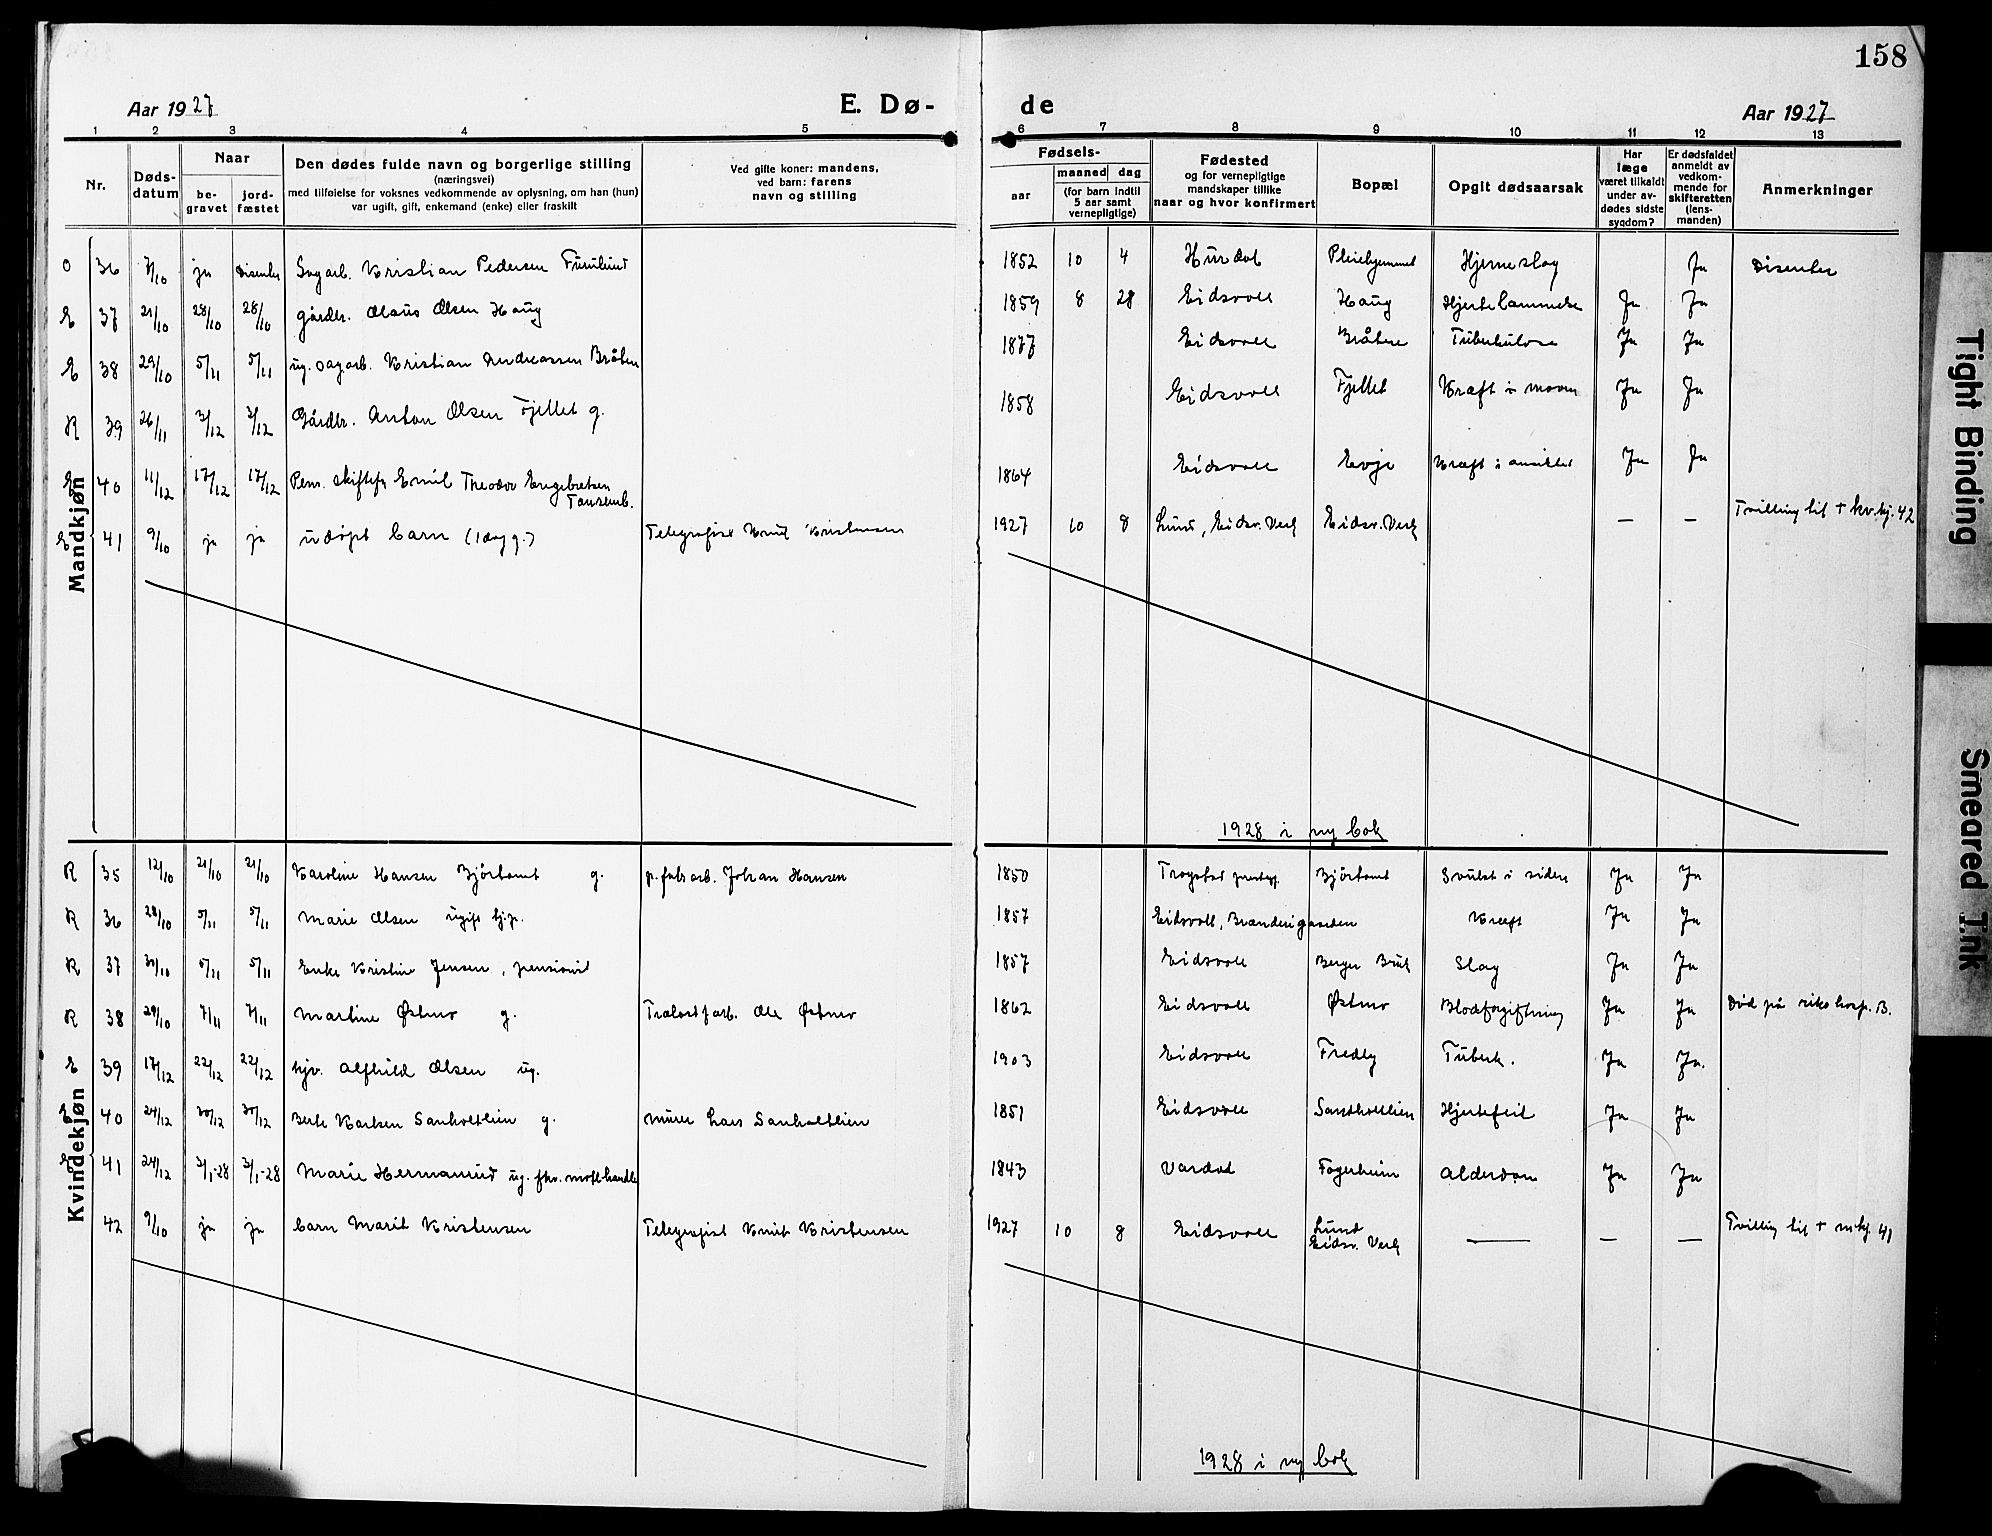 158
Aar 1927
E. Dø-
de
Aar 1927
1 2 3 4 5 6 7 8 9 10 11 12 13
Nr.
Døds-
datum
Naar
be-
gravet
jord-
fæstet
Den dødes fulde navn og borgerlige stilling
(næringsvei)
med tilføielse for voksnes vedkommende av oplysning, om han (hun)
var ugift, gift, enkemand (enke) eller fraskilt
Ved gifte koner: mandens,
ved barn: farens
navn og stilling
Fødsels-
aar
maaned dag
(for barn indtil
5 aar samt
vernepligtige)
Fødested
og for vernepligtige
mandskaper tillike
naar og hvor konfirmert
Bopæl
Opgit dødsaarsak
Har
læge
været tilkaldt
under av-
dødes sidste
sygdom?
Er dødsfaldet
anmeldt av
vedkom-
mende for
skifteretten
(lens-
manden)
Anmerkninger
Mandkjøn
O 36 7/10 ja Disenter Sagarb. Kristian Pedersen Furulund 1852 10 4 Hurdal Pleiehjemmet Hjerneslag Ja Disenter
E 37 21/10 28/10 28/10 gårdbr. Olaus Olsen Haug 1859 8 28 Eidsvoll Haug Hjertelammelse Ja Ja
E 38 29/10 5/11 5/11 ug. sagarb. Kristian Andreassen Bråten 1877 Eidsvoll Bråten Tuberkulose Ja Ja
R 39 26/11 3/12 3/12 Gårdbr. Anton Olsen Fjellet g. 1858 Eidsvoll Fjellet Kræft i maven Ja Ja
E 40 11/12 17/12 17/12 Pens. skiftef. Emil Theodor Engebretsen
1864 Eidsvoll Evje Kræft i ansiktet Ja Ja
E 41 9/10 ja ja udøpt barn (1 dag g.) Telegrafist Knut Kristensen 1927 10 8 Lund, Eidsv. Verk Eidsv. Verk — — Tvilling til + kv.kj. 42
1928 i ny bok
Kvindekjøn
R 35 12/10 21/10 21/10 Karoline Hansen Bjørtomt g. p. fabr.arb. Johan Hansen 1850 Trøgstad prestegj. Bjørtomt Svulst i siden Ja Ja
R 36 28/10 5/11 5/11 Marie Olsen ugift 1857 Eidsvoll, Brænderigaarden Kræft Ja Ja
R 37 31/10 5/11 5/11 Enke Kristine Jensen, pensionist 1857 Eidsvoll Berger Bruk Slag Ja Ja
R 38 29/10 7/11 7/11 Martine Østmo g. Ole Østmo 1862 Eidsvoll Østmo Blodforgiftning Ja Ja Død på rikshosp. B.
E 39 17/12 22/12 22/12 hjv. Alfhild Olsen ug. 1903 Eidsvoll Fredly Tuberk. Ja Ja.
E 40 24/12 30/12 30/12 Berte Karlsen Sanholtlien g. murer Lars Sanholtlien 1851 Eidsvoll Sandholtlien Hjertefeil Ja Ja
E 41 24/12 3/1-28 3/1-28 Marie Hermanrud ug. fhv. 1843 Vardal Fagerheim Alderdom Ja Ja
42 9/10 ja ja barn Marit Kristensen Telegrafist Knut Kristensen 1927 10 8 Eidsvoll Lund
Eidsv. Verk — — — Tvilling til + m.kj. 41
1928 i ny bok
Tight Binding
Smeared Ink